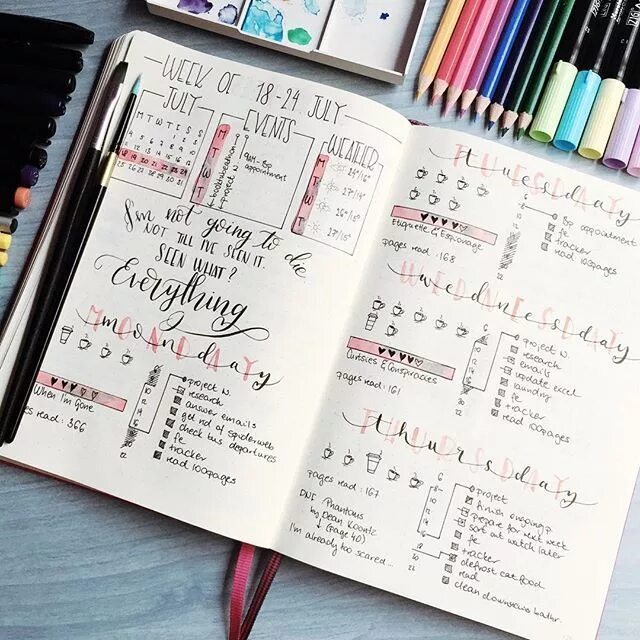 WEEK OF 18-24 JULY
JULY
M T W T F S S
18 19 20 21 22 23 24
EVENTS
M
T
W
T
project N.
9AM - 8p
appointment
WEATHER
M 24°/16°
T 27°/19°
W 26°/18°
T 27/18°
I'm not going to die
NOT TILL I'VE SEEN IT.
SEEN WHAT?
Everything
monday
MONDAY
When I'm Gone
pages read: 366
project N.
research
answer emails
get rid of spiderweb
check bus departures
fe
tracker
read 100pages
tuesday
TUESDAY
Etiquette & Espionage
pages read: 168
8p appointment
fe
tracker
read 100pages
wednesday
WEDNESDAY
Curtsies & Conspiracies
pages read: 161
project N.
research
emails
update excel
laundry
fe
tracker
read 100pages
thursday
THURSDAY
pages read: 167
DNF Phantoms
by Dean Koontz
(page 40)
I'm already too scared...
project
finish ongoing?
prepare for next week
sort out watch later
fe
tracker
defrost cat food
read
clean downstairs bathr.